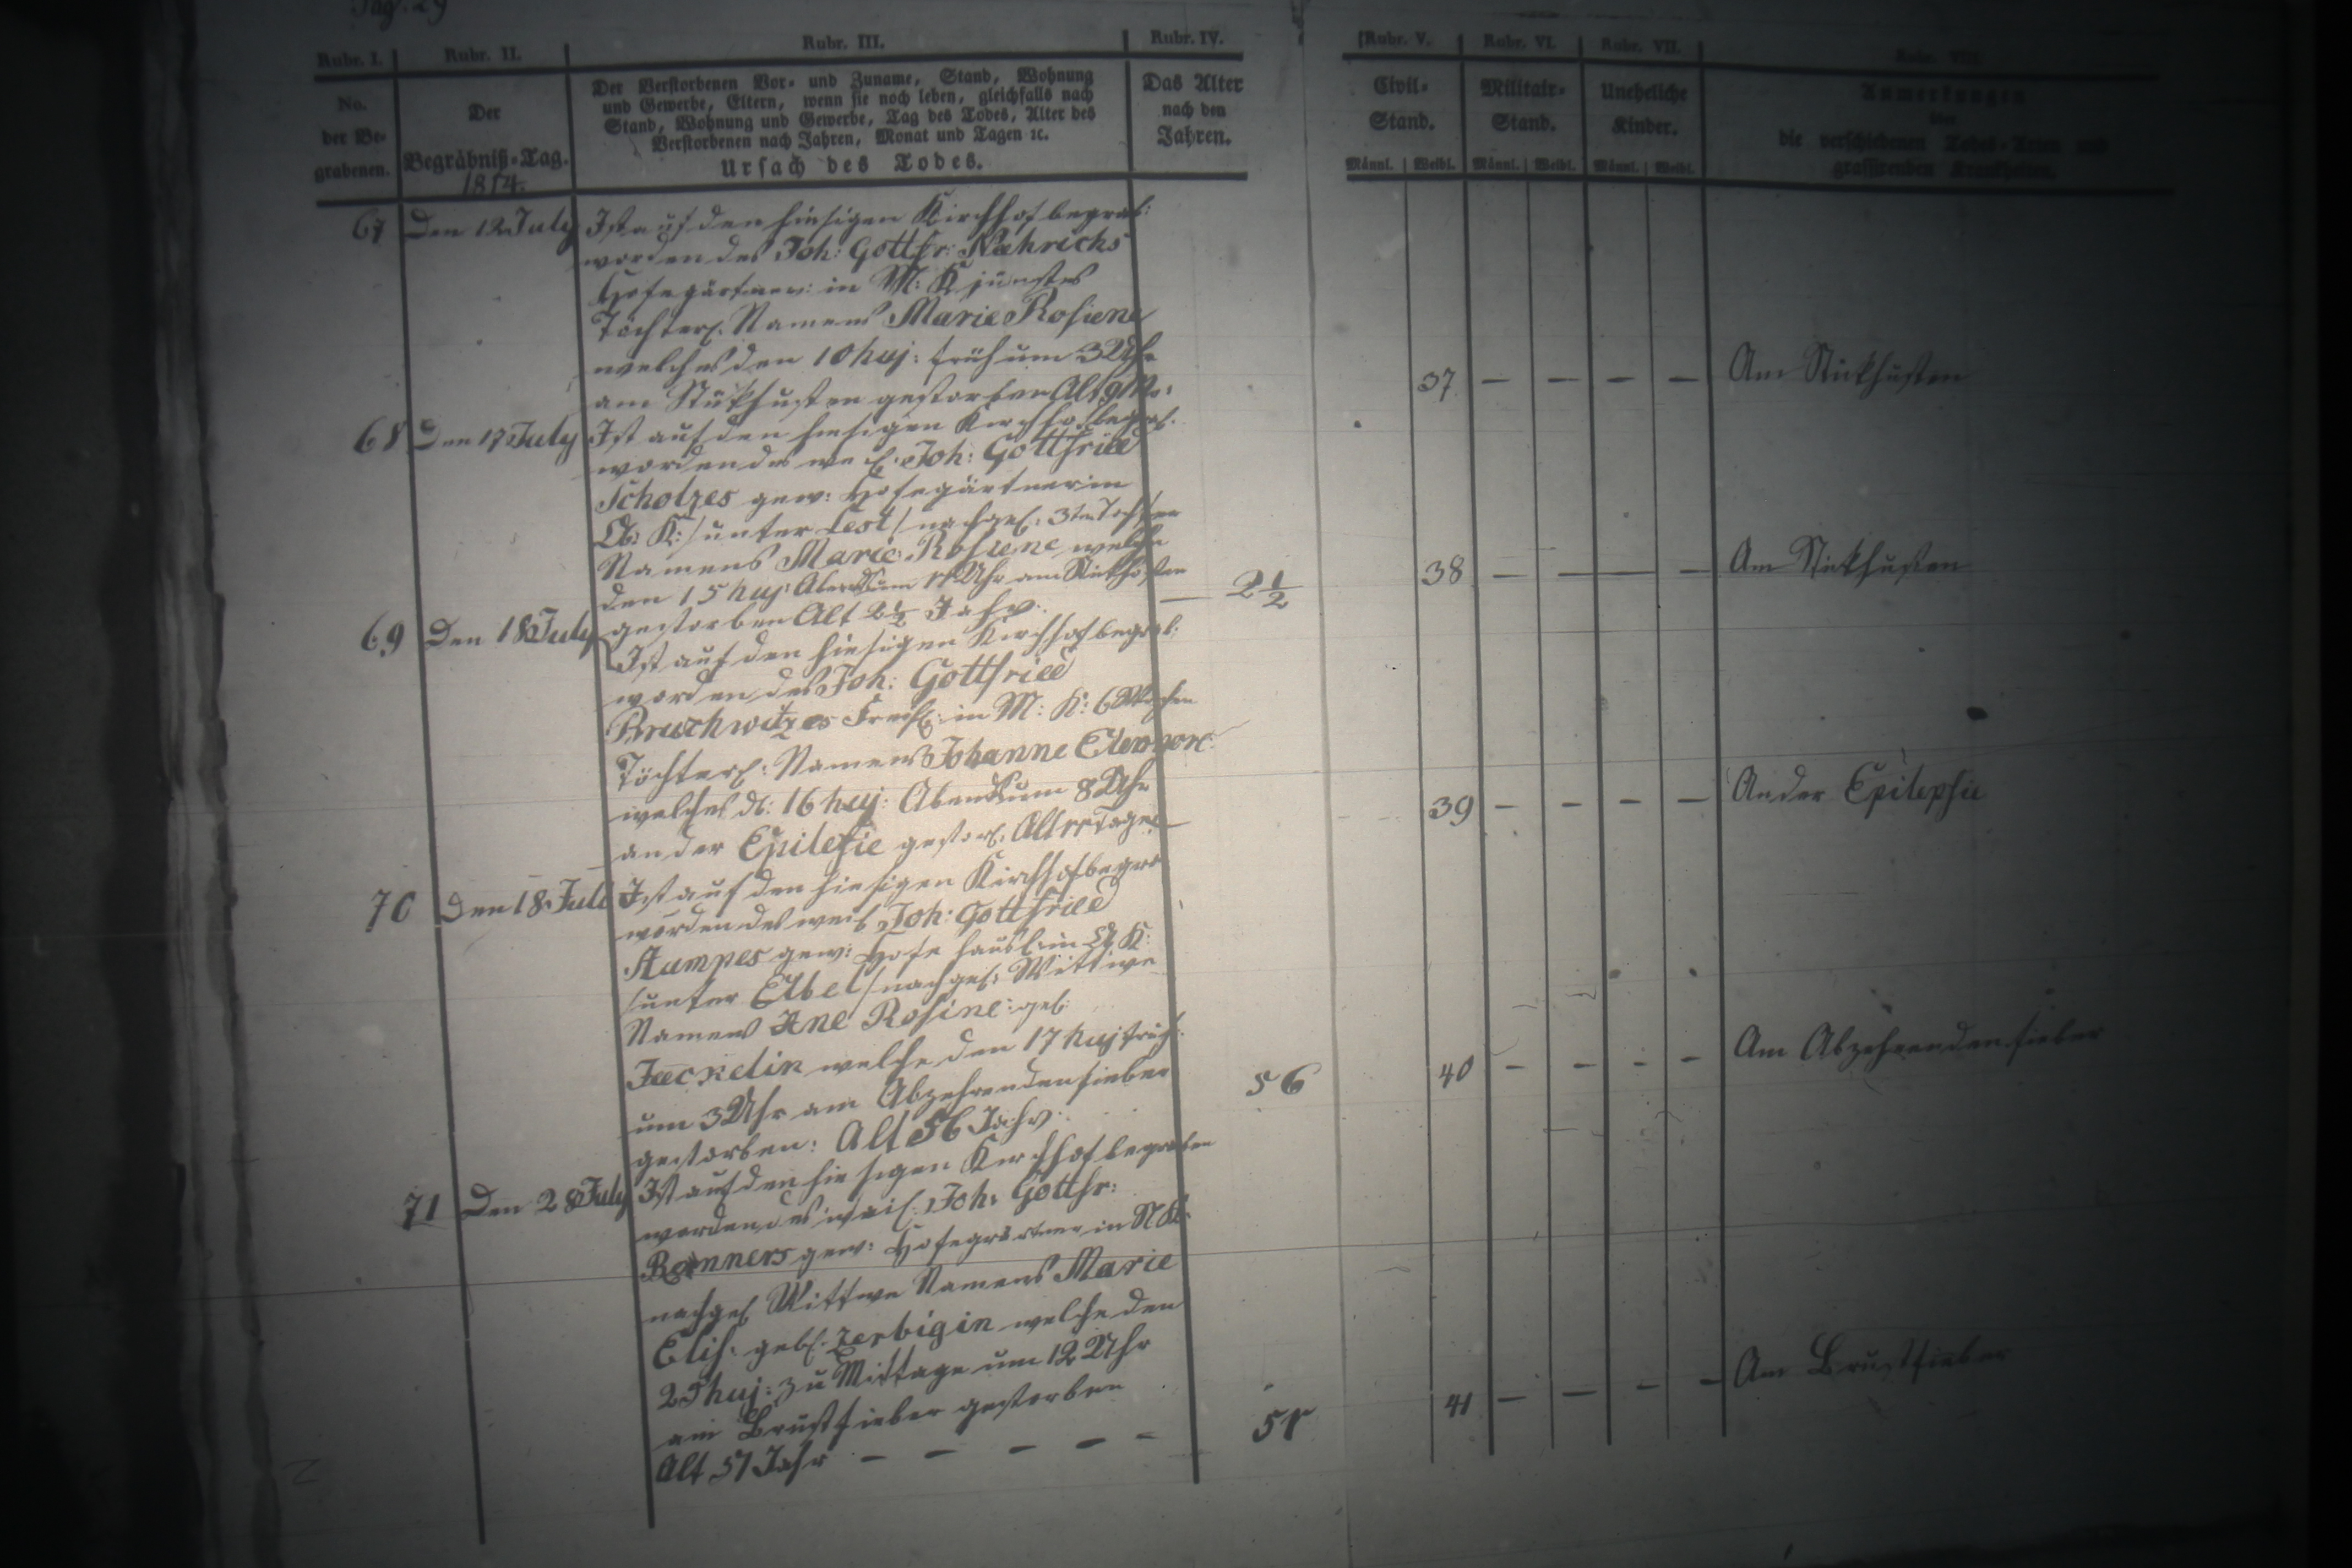 Pag. 29
Rubr. I. Rubr. II. Rubr. III. Rubr. IV. Rubr. V. Rubr. VI. Rubr. VII. Rubr. VIII.
No. der Be-grabenen.
Der Begräbniß-Tag. 1814.
Der Verstorbenen Vor- und Zuname, Stand, Wohnung
und Gewerbe, Eltern, wenn sie noch leben, gleichfalls nach
Stand, Wohnung und Gewerbe, Tag des Todes, Alter des
Verstorbenen nach Jahren, Monat und Tagen ꝛc.
Ursach des Todes.
Das Alter
nach den
Jahren.
Civil-
Stand.
Männl. Weibl.
Militair-
Stand.
Männl. Weibl.
Uneheliche
Kinder.
Männl. Weibl.
Anmerkungen
über
die verschiedenen Todes-Arten und
grassirenden Krankheiten.
67 Den 12 July Ist auf den hiesigen Kirchhof begrab:
worden des Joh: Gottfr: Nahrichs
Hofegärtners: in M: K jüngstes
Töchterl. Namens Marie Rosiene
welches den 10 huj: früh um 3 Uhr
am Stickhusten gestorben Alt 9 Mo:
37 — — — — Am Stickhusten
68 Den 17 July Ist auf den hiesigen Kirchhof begrab.
worden des weil. Joh: Gottfried
Scholzes gew: Hofegärtner in
K: /unter Lest/ nachgel: 3te Tochter
Namens Marie Rosiene welche
den 15 huj: Abends um Uhr am Stickhusten
gestorben Alt 2½ Jahr. — 2½
38 — — — Am Stickhusten
69 Den 18 July Ist auf den hiesigen Kirchhof begrab:
worden des Joh: Gottfried
Bruchwitzes in M: K: 6 Wochen
Töchterl: Namens Johanne Eleonore
welches d: 16 huj: Abends um 8 Uhr
an der Epilefie gestorb. Alt Tage —
39 — — — — An der Epilepsie
70 Den 18. Juli Ist auf den hiesigen Kirchhof begra
worden des weil Joh: Gottfried
gew: Hofe häusl: in K:
/unter Eibel/ nachgel: Wittwe
Namens Ane Rosine: geb.
Jaeckelin welche den 17 huj früh.
um 3 Uhr am Abzehrenden fieber
gestorben: Alt 56 Jahr. 56
40 — — — — Am Abzehrenden fieber
71 Den 28 July Ist auf den hiesigen Kirchhof begraben
worden des weil: Joh: Gottfr:
gew: Hofegärtner in N K:
nachgel Wittwe Namens Marie
Elis: geb. Zerbigin welche den
25 huj: zu Mittage um 12 Uhr
am Brustfieber gestorben
Alt 57 Jahr — — — — —
41 — — — — Am Brustfieber